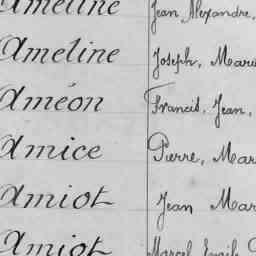 Ameline Jean, Alexandre,
Ameline Joseph, Marie
Améon Francis, Jean,
Amice Pierre, Mar
Amiot Jean Mar
Amiot Marcel Emile